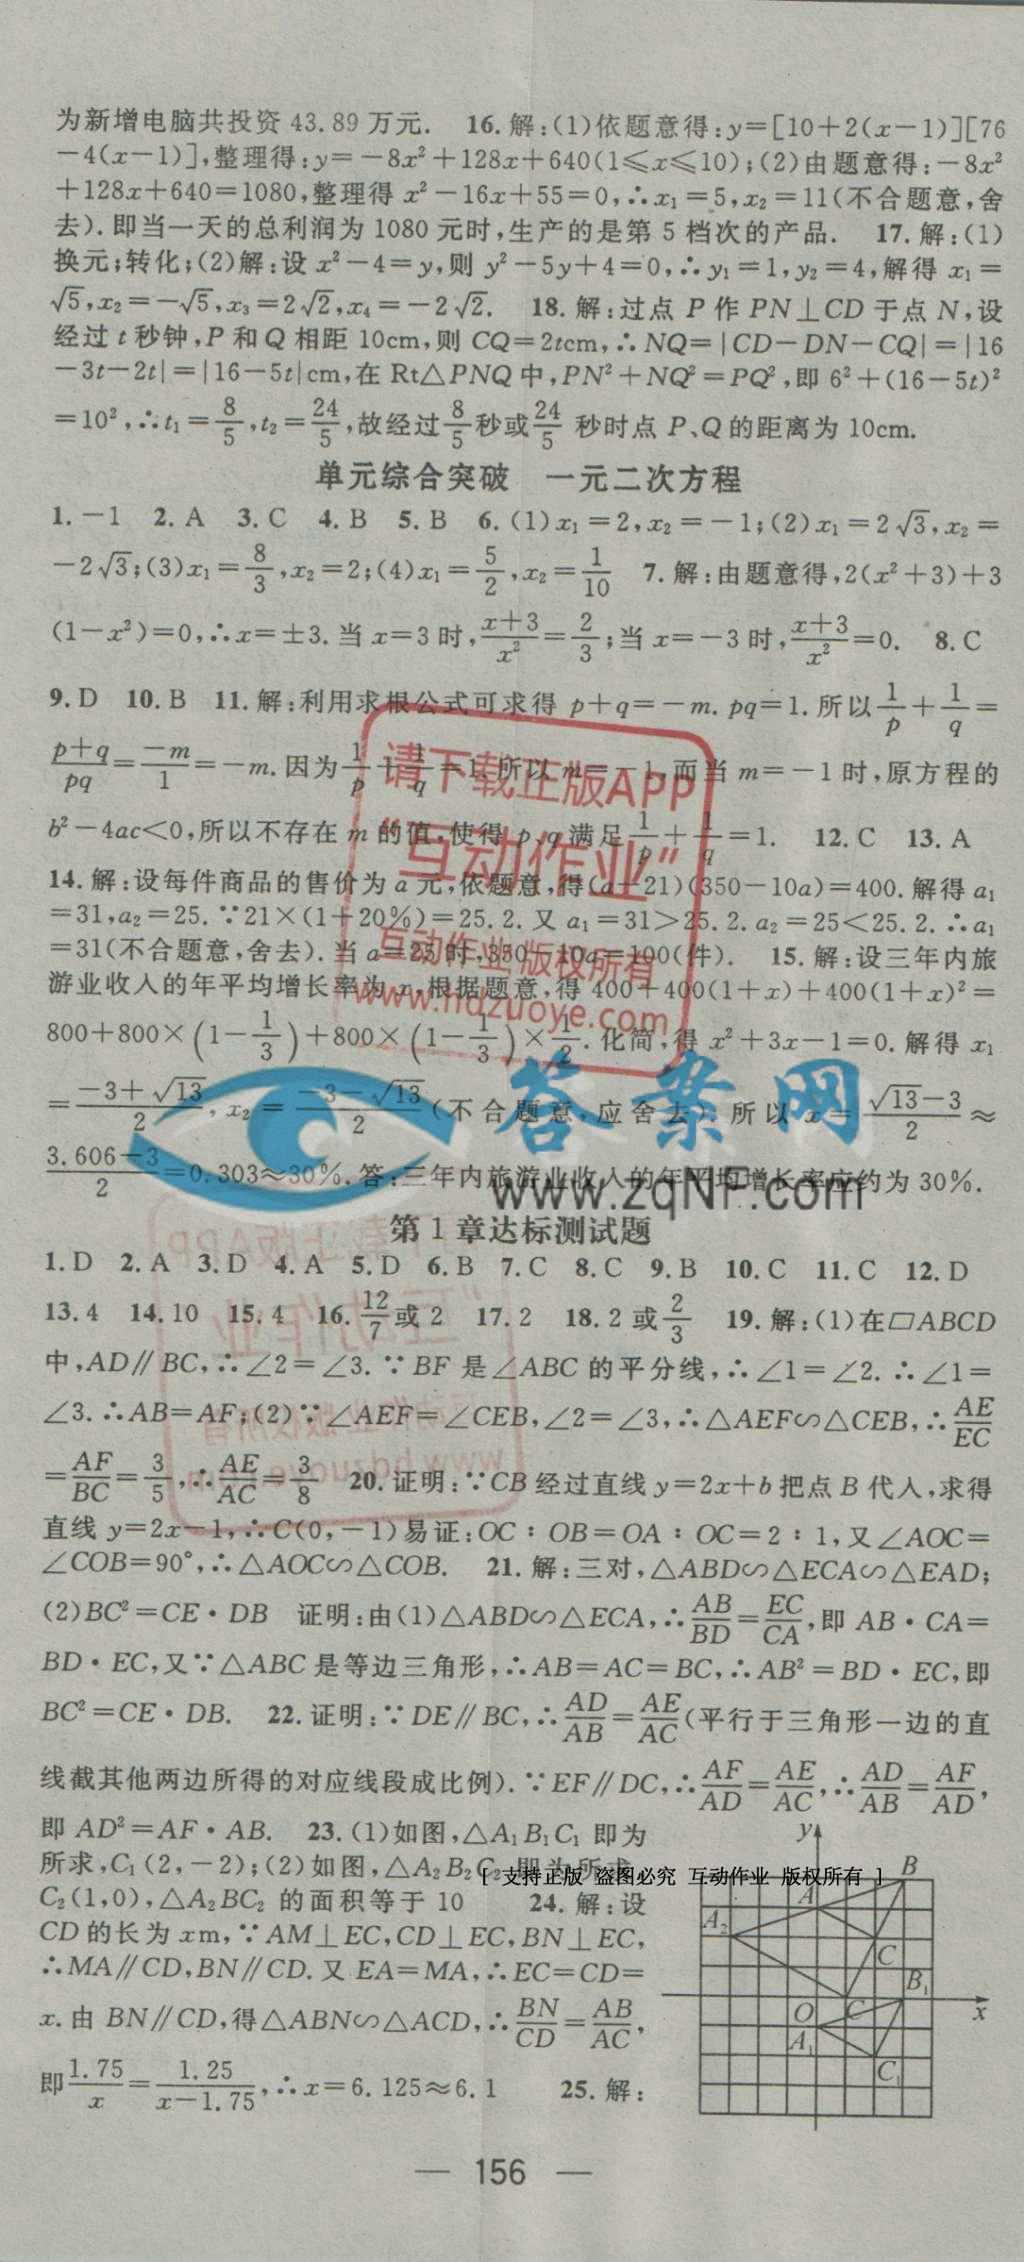 为新增电脑共投资 43.89 万元. 16. 解:(1)依题意得:y=[10+2(x-1)][76
-4(x-1)],整理得:y=-8x²+128x+640(1≤x≤10);(2)由题意得:-8x²
+128x+640=1080,整理得 x²-16x+55=0,∴x₁=5,x₂=11(不合题意,舍
去). 即当一天的总利润为 1080 元时,生产的是第 5 档次的产品. 17. 解:(1)
换元;转化;(2)解:设 x²-4=y,则 y²-5y+4=0,∴y₁=1,y₂=4,解得 x₁=
√5,x₂=-√5,x₃=2√2,x₄=-2√2. 18. 解:过点 P 作 PN⊥CD 于点 N,设
经过 t 秒钟,P 和 Q 相距 10cm,则 CQ=2tcm,∴NQ=|CD-DN-CQ|=|16
-3t-2t|=|16-5t|cm,在 Rt△PNQ 中,PN²+NQ²=PQ²,即 6²+(16-5t)²
=10²,∴t₁=8/5,t₂=24/5,故经过8/5秒或24/5 秒时点 P、Q 的距离为 10cm.
单元综合突破 一元二次方程
1. -1 2. A 3. C 4. B 5. B 6. (1)x₁=2,x₂=-1;(2)x₁=2√3,x₂=
-2√3;(3)x₁=8/3,x₂=2;(4)x₁=5/2,x₂=1/10 7. 解:由题意得,2(x²+3)+3
(1-x²)=0,∴x=±3. 当 x=3 时,(x+3)/x²=2/3;当 x=-3 时,(x+3)/x²=0. 8. C
9. D 10. B 11. 解:利用求根公式可求得 p+q=-m. pq=1. 所以1/p+1/q=
(p+q)/pq=-m/1=-m. 因为1/p+1/q=1. 所以 m=-1,而当 m=-1 时,原方程的
b²-4ac<0,所以不存在 m 的值,使得 p、q 满足1/p+1/q=1. 12. C 13. A
14. 解:设每件商品的售价为 a 元,依题意,得(a-21)(350-10a)=400. 解得 a₁
=31,a₂=25. ∵21×(1+20%)=25.2. 又 a₁=31>25.2. a₂=25<25.2. ∴a₁
=31(不合题意,舍去). 当 a=25 时,350-10a=100(件). 15. 解:设三年内旅
游业收入的年平均增长率为 x,根据题意,得 400+400(1+x)+400(1+x)²=
800+800×(1-1/3)+800×(1-1/3)×1/2. 化简,得 x²+3x-1=0. 解得 x₁
=(-3+√13)/2, x₂=(-3-√13)/2(不合题意,应舍去). 所以 x=(√13-3)/2≈
(3.606-3)/2=0.303≈30%. 答:三年内旅游业收入的年平均增长率应约为 30%.
请下载正版APP
"互动作业"
互动作业 版权所有
www.hdzuoye.com
答案网
www.zqNF.com
第 1 章达标测试题
1. D 2. A 3. D 4. A 5. D 6. B 7. C 8. C 9. B 10. C 11. C 12. D
13. 4 14. 10 15. 4 16. 12/7或 2 17. 2 18. 2 或2/3 19. 解:(1)在▱ABCD
中,AD∥BC,∴∠2=∠3. ∵BF 是∠ABC 的平分线,∴∠1=∠2. ∴∠1=
∠3. ∴AB=AF;(2)∵∠AEF=∠CEB,∠2=∠3,∴△AEF∽△CEB,∴AE/EC
=AF/BC=3/5,∴AE/AC=3/8 20. 证明:∵CB 经过直线 y=2x+b 把点 B 代人,求得
直线 y=2x-1,∴C(0,-1)易证:OC∶OB=OA∶OC=2∶1,又∠AOC=
∠COB=90°,∴△AOC∽△COB. 21. 解:三对,△ABD∽△ECA∽△EAD;
(2)BC²=CE·DB 证明:由(1)△ABD∽△ECA,∴AB/BD=EC/CA,即 AB·CA=
BD·EC,又∵△ABC 是等边三角形,∴AB=AC=BC,∴AB²=BD·EC,即
BC²=CE·DB. 22. 证明:∵DE∥BC,∴AD/AB=AE/AC(平行于三角形一边的直
线截其他两边所得的对应线段成比例). ∵EF∥DC,∴AF/AD=AE/AC,∴AD/AB=AF/AD,
即 AD²=AF·AB. 23. (1)如图,△A₁B₁C₁ 即为
所求,C₁(2,-2);(2)如图,△A₂B₂C₂ 即为所求,
[ 支持正版 盗图必究 互动作业 版权所有 ]
C₂(1,0),△A₂BC₂ 的面积等于 10 24. 解:设
CD 的长为 xm,∵AM⊥EC,CD⊥EC,BN⊥EC,
∴MA∥CD,BN∥CD. 又 EA=MA,∴EC=CD=
x. 由 BN∥CD,得△ABN∽△ACD,∴BN/CD=AB/AC,
即1.75/x=1.25/(x-1.75),∴x=6.125≈6.1 25. 解:
y
B
A
A₂
C
B₁
O
C
x
A₁
C₁
— 156 —